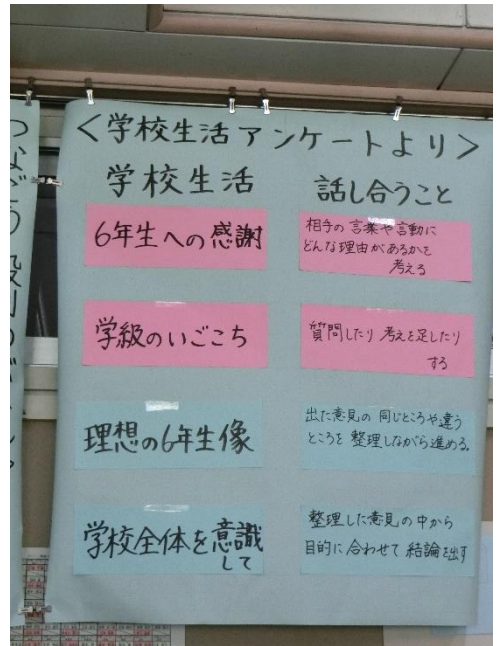 <学校生活アンケートより>
学校生活
6年生への感謝
学級のいごこち
理想の6年生像
学校全体を意識
して
話し合うこと
相手の言葉や言動に
どんな理由があるかを
考える
質問したり 考えを足したり
する
出た意見の 同じところや違う
ところを 整理しながら進める。
整理した意見の中から
目的に合わせて 結論を出す
つなごう